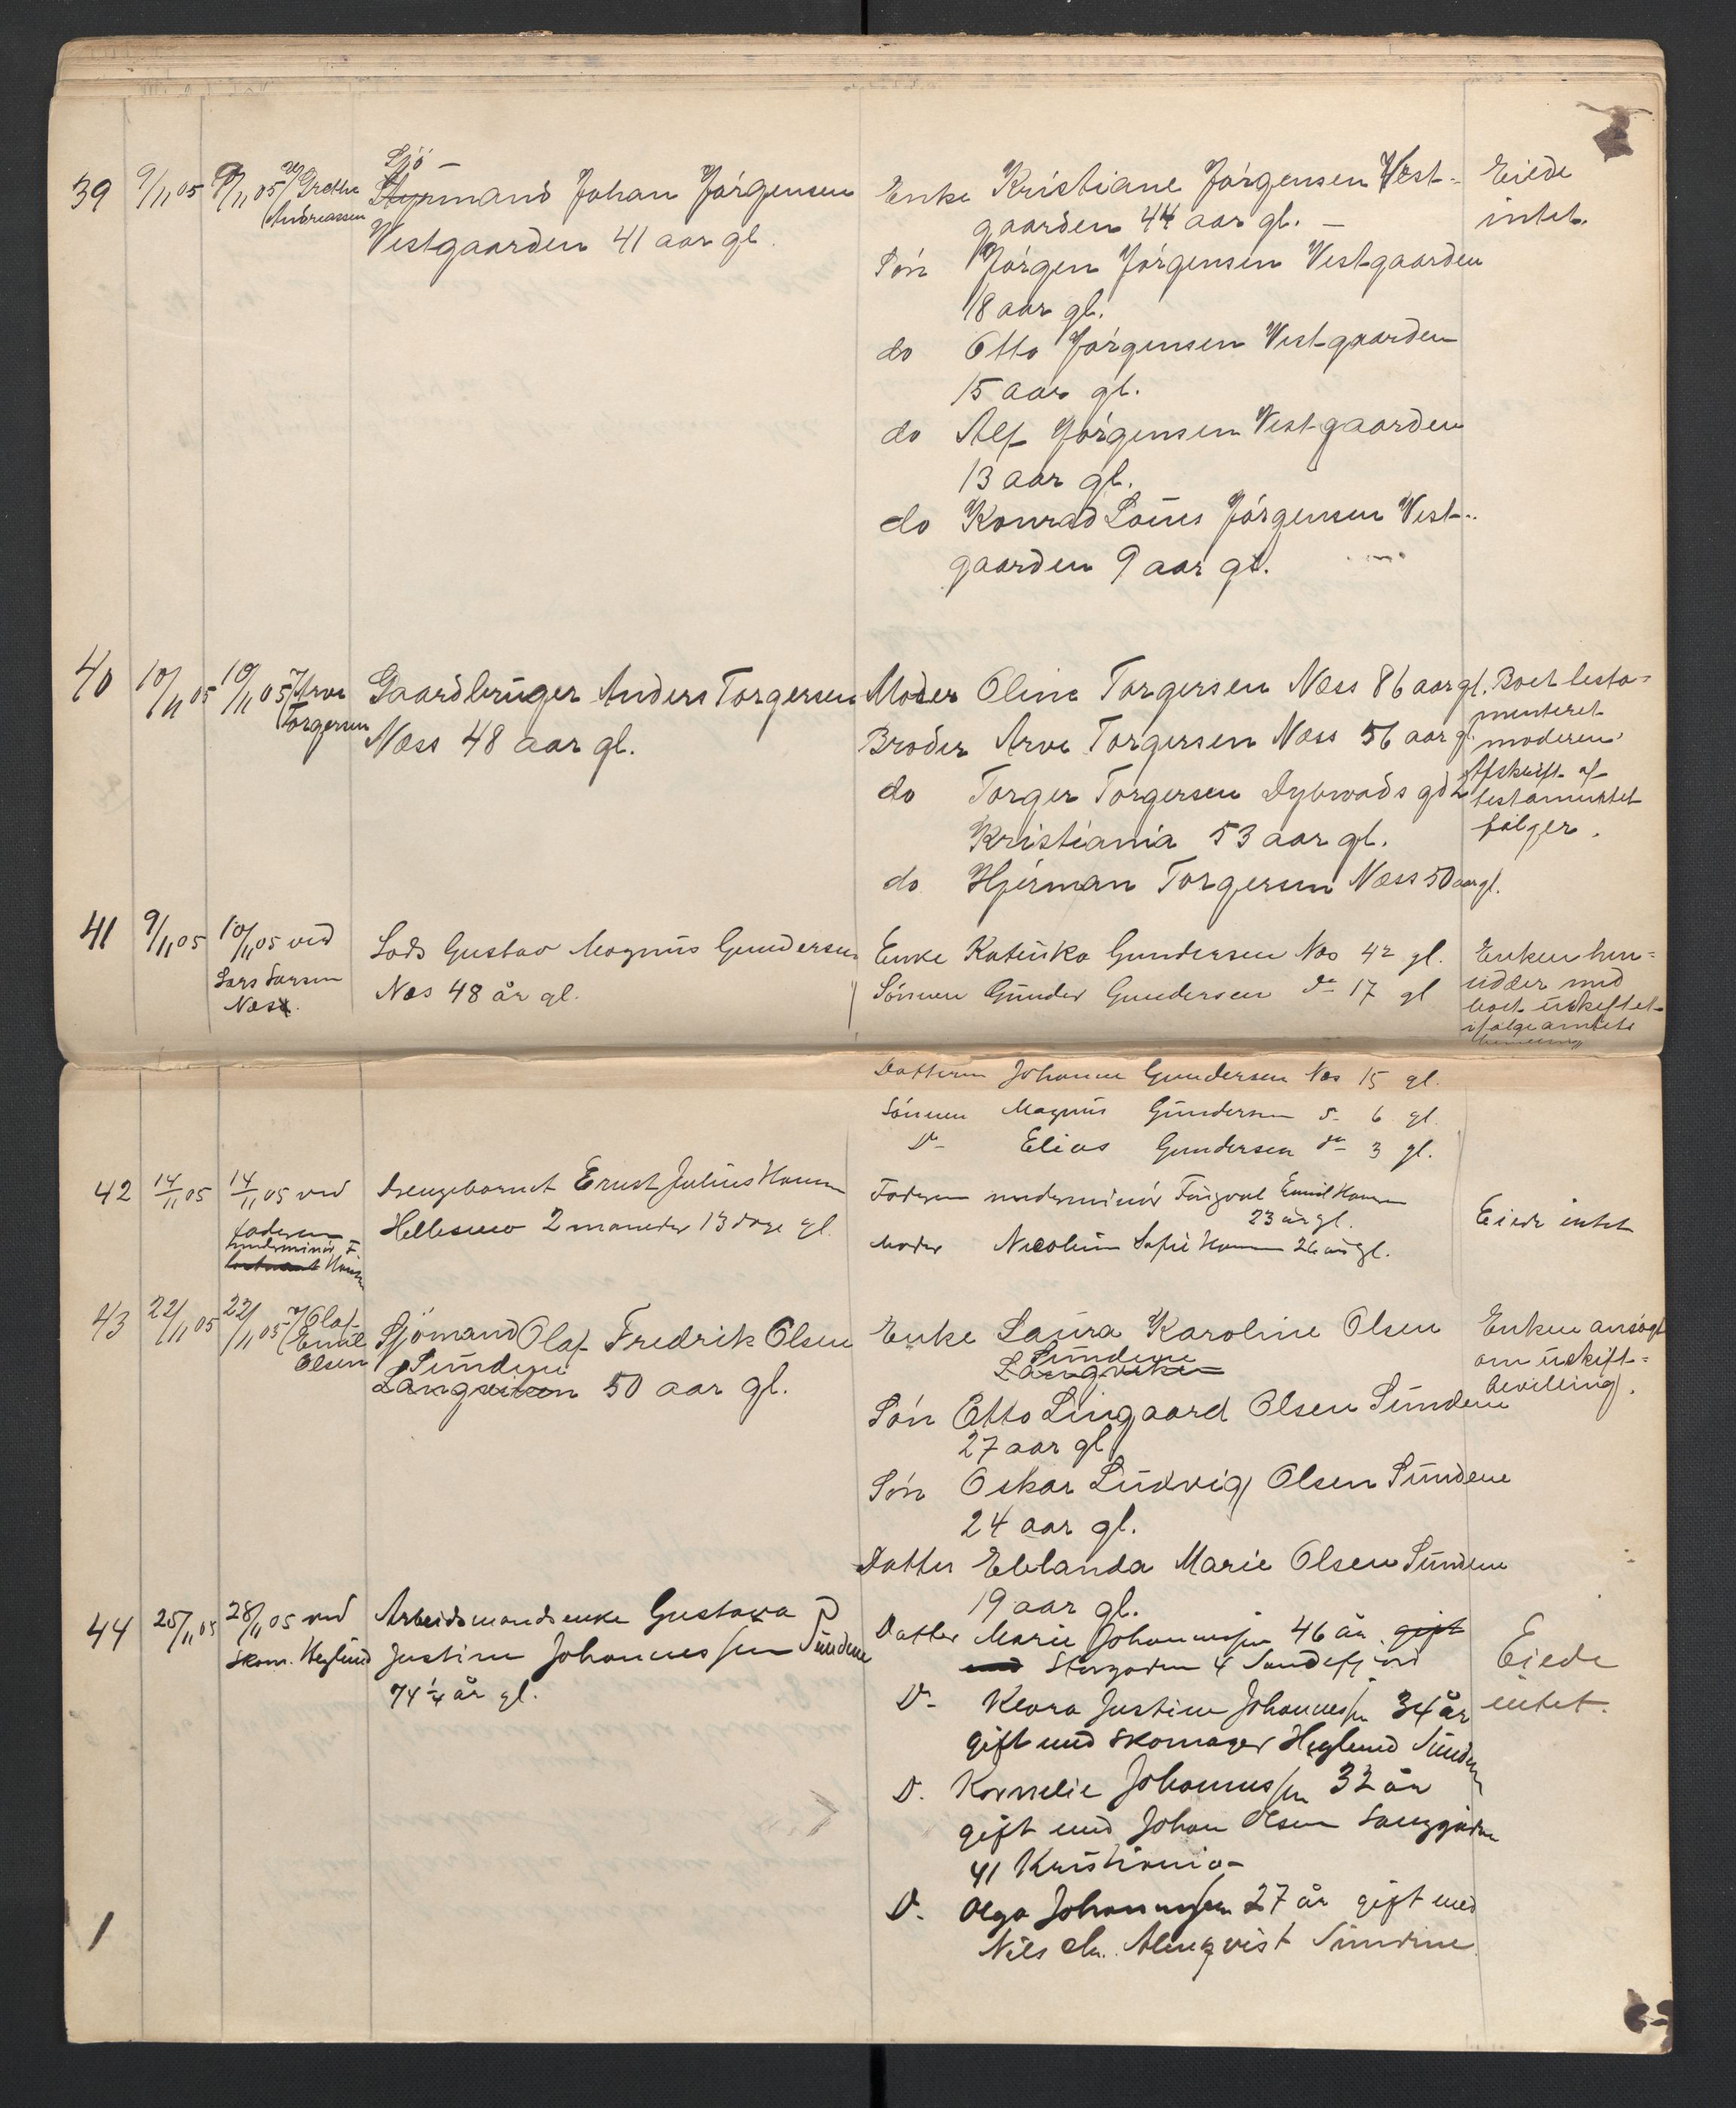 39 9/11 05 9/11 05 v/ Grethe Andreassen
Sjö-
Styrmand Johan Jørgensen
Vestgaarden 41 aar gl.
Enke Kristiane Jørgensen Vest-
gaarden 44 aar gl. —
Søn Jørgen Jørgensen Vestgaarden
18 aar gl.
do Otto Jørgensen Vestgaarden
15 aar gl.
do Alf Jørgensen Vestgaarden
13 aar gl.
do Konrad Louis Jørgensen Vest-
gaarden 9 aar gl.
Eiede
intet.
40 10/11 05 10/11 05 v/ Arve Torgersen
Gaardbruger Anders Torgersen
Næss 48 aar gl.
Moder Oline Torgersen Næss 86 aar gl.
Broder Arve Torgersen Næss 56 aar gl.
do Torger Torgersen Dybwads gd 2
Kristiania 53 aar gl.
do Hjerman Torgersen Næss 50 aar gl.
Boet testa-
menteret
moderen.
Afskrift af
testamentet
følger.
41 9/11 05 10/11 05 ved
Lars Larsen
Næs.
Lods Gustav Magnus Gundersen
Næs 48 år gl.
Enke Katinka Gundersen Næs 42 gl.
Sønnen Gunder Gundersen do 17 gl
Enken hen-
sidder med
boet uskiftet
ifølge amtets
Datteren Johanne Gundersen Næs 15 gl.
Sønnen Magnus Gundersen do 6 gl.
Do Elias Gundersen do 3 gl.
42 14/11 05 14/11 05 ved
faderen
underminör F.
Hansen
Drengebarnet Ernst Julius Hansen
Hellesund 2 maaneder 13 dage gl.
Faderen underminör Emil Hansen
23 år gl.
Moder Nicoline Sofie Hansen 26 år gl.
Eiede intet
43 22/11 05 22/11 05 v/ Olaf
Emil
Olsen
Sjömand Olaf Fredrik Olsen
Sundene
Langviken 50 aar gl.
Enke Laura Karoline Olsen
Sundene
Langviken
Søn Otto Lingaard Olsen Sundene
27 aar gl
Søn Oskar Ludvig Olsen Sundene
24 aar gl.
Datter Eblanda Marie Olsen Sundene
19 aar gl.
Enken ansøgt
om uskift-
bevilling.
44 25/11 05 28/11 05 ved
skom. Heglund
Arbeidsmandsenke Gustava
Justine Johannessen Sundene
74 1/4 år gl.
Datter Marie Johannessen 46 år gift
med Storgaden 4 Sandefjord
D. Klara Justine Johannessen 34 år
gift med skomager Heglund Sundene
D. Kornelie Johannessen 32 år
gift med Johan Olsen Langgaden
41 Kristiania
D. Olga Johannessen 27 år gift med
Nils Chr. Almqvist Sundene
Eiede
intet.
1